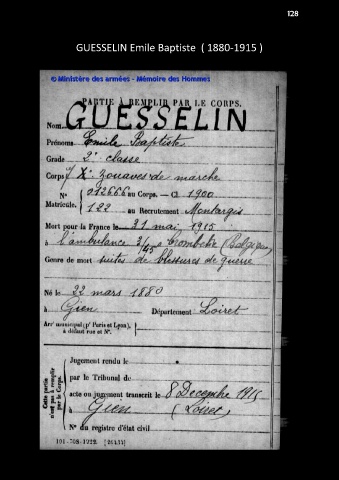 128
GUESSELIN Emile Baptiste ( 1880-1915 )
© Ministère des armées - Mémoire des Hommes
PARTIE À REMPLIR PAR LE CORPS.
Nom GUESSELIN
Prénoms Emile Baptiste
Grade 2e classe
Corps Xe Zouaves de marche
N° 012666 au Corps. — Cl 1900
Matricule. 122 au Recrutement Montargis
Mort pour la France le 31 mai 1915
à l'ambulance 3/45 e Crombeke (Belgique)
Genre de mort suites de blessures de guerre
Né le 22 mars 1880
à Gien Département Loiret
Arrt municipal (pr Paris et Lyon), à défaut rue et N°.
Cette partie n'est pas à remplir par le Corps.
Jugement rendu le
par le Tribunal de
acte ou jugement transcrit le 8 Decembre 1915
à Gien (Loiret)
N° du registre d'état civil
101-708-1922. [26434]